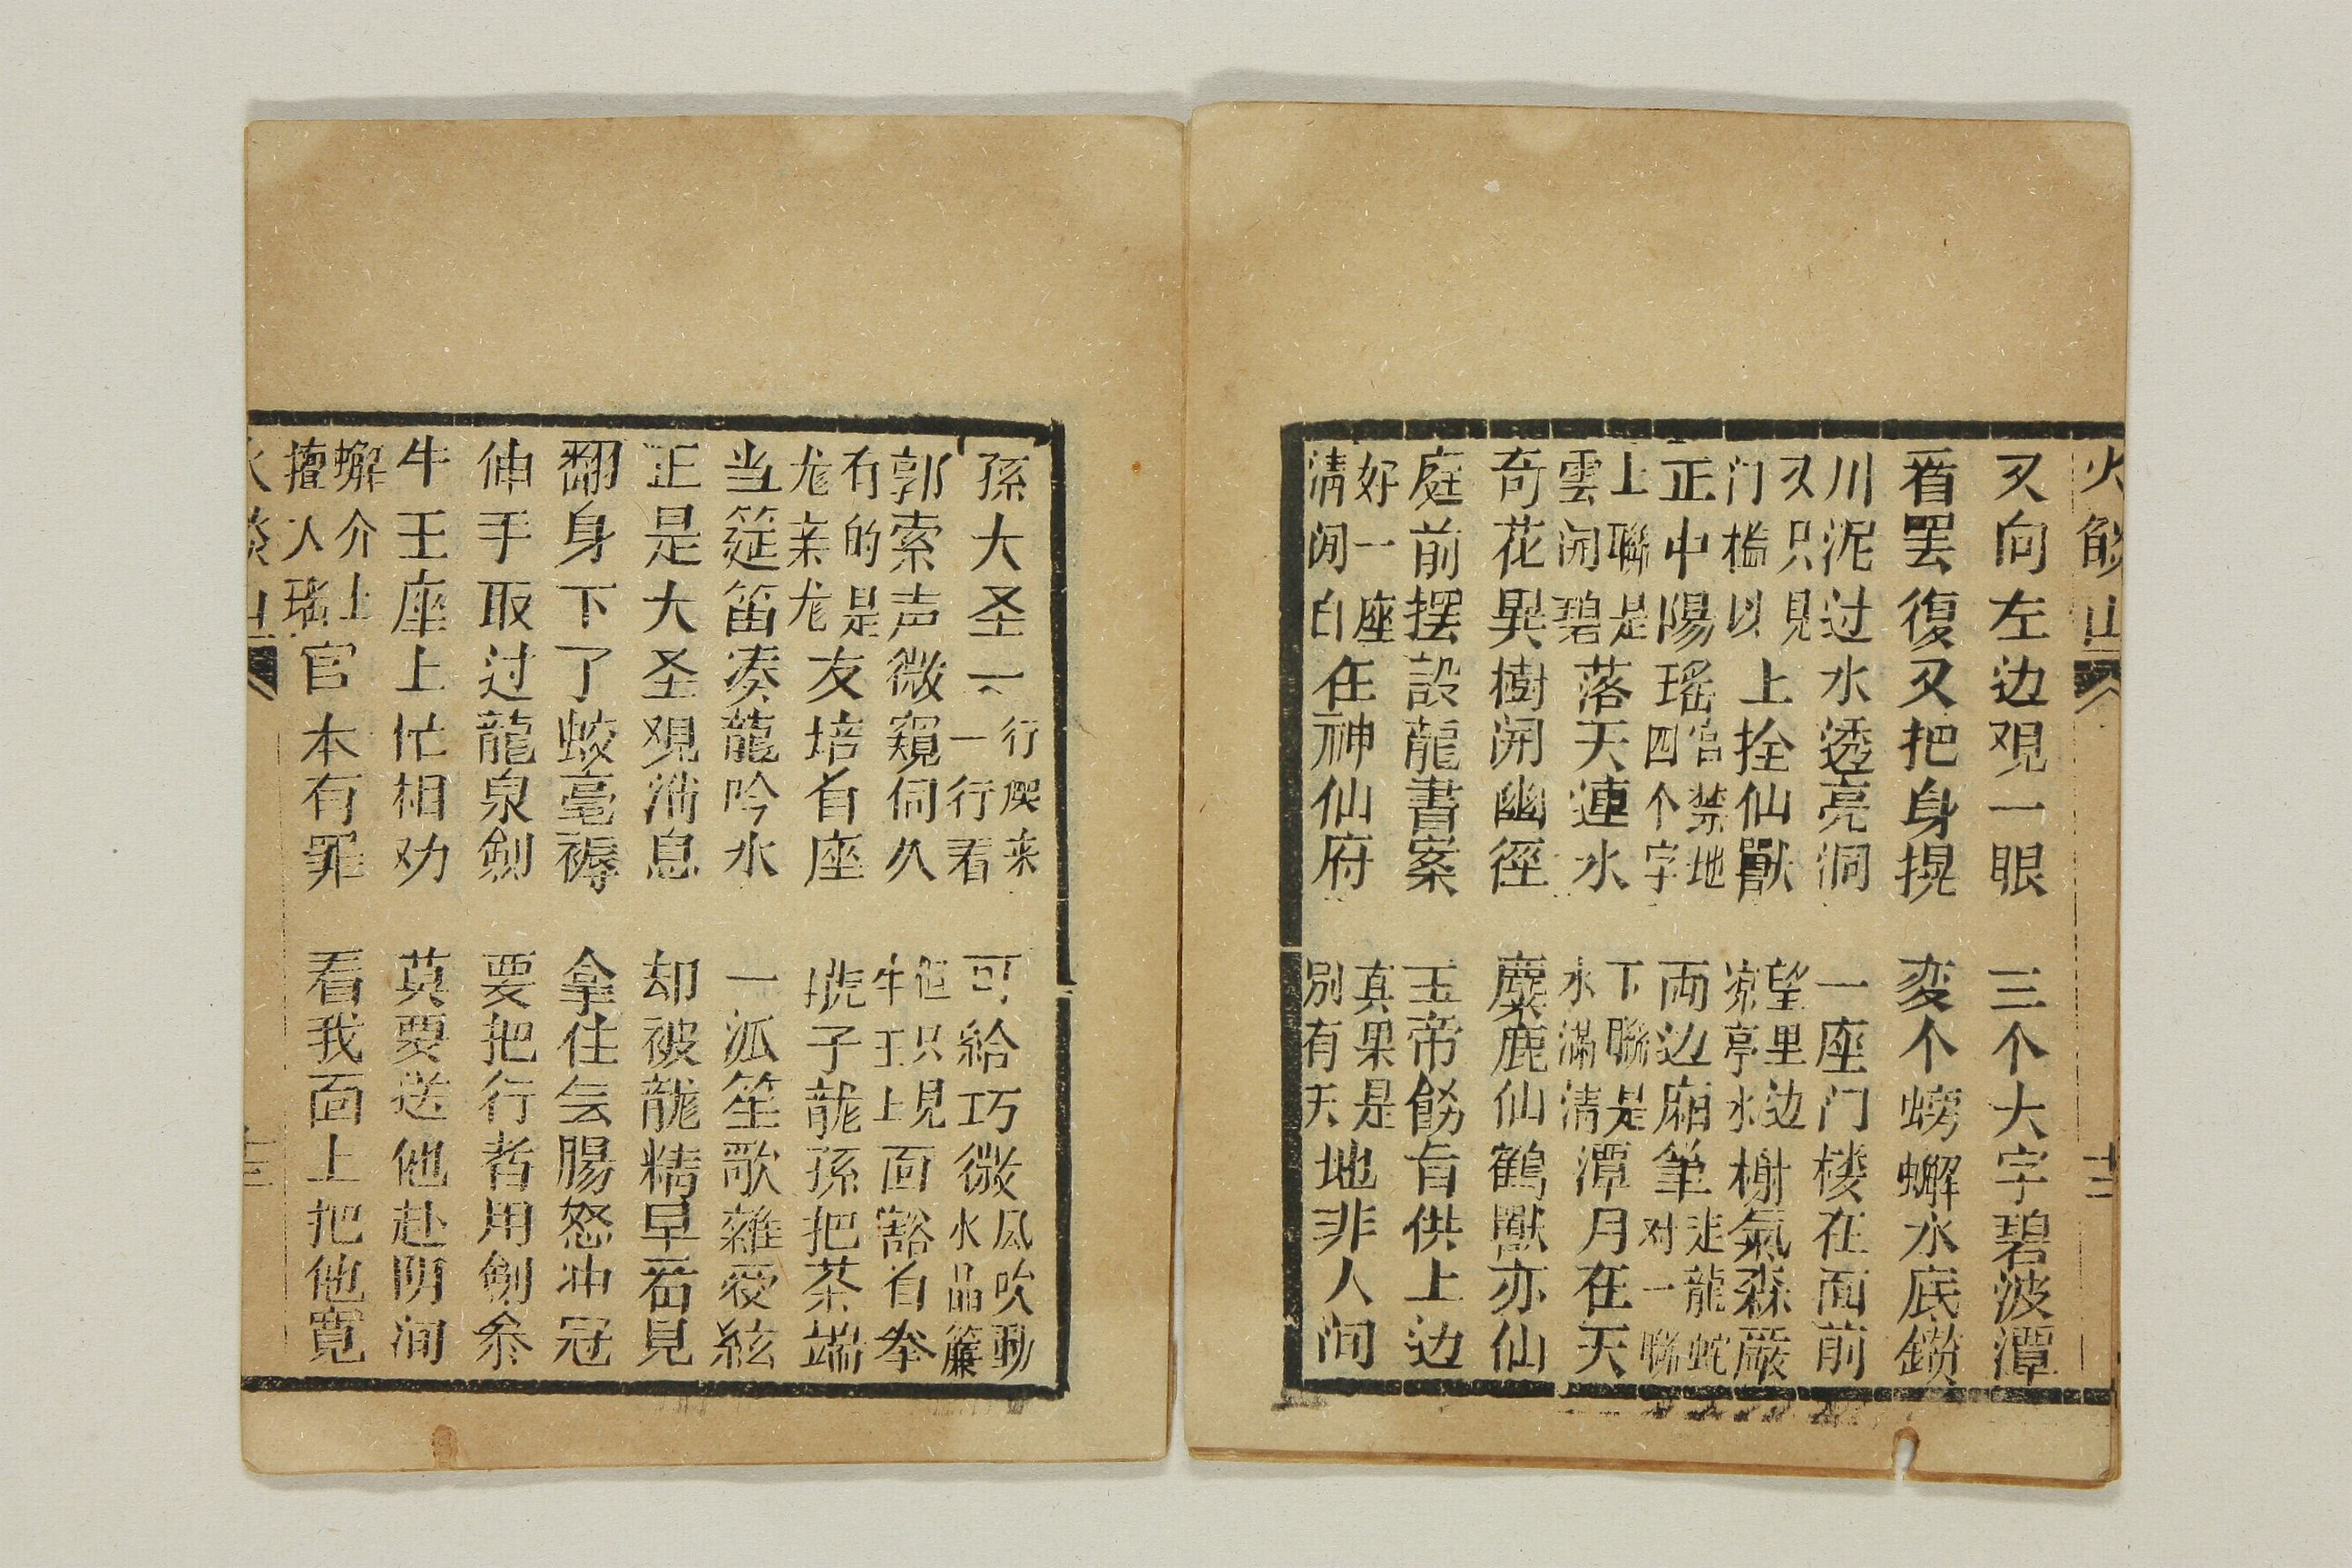 火焰山
十三
又向左边观一眼 三个大字碧波潭
看罢復又把身搃 変个螃蠏水底鑽
川泥过水透亮洞 一座门楼在面前
又只見门槛以上拴仙獸 望里边凉亭水榭氣森嚴
正中陽瑤宫禁地四个字 両边廂筆走龍蛇对一聯
上聯是雲闲碧落天連水 下聯是水滿清潭月在天
奇花異樹開幽徑 麋鹿仙鶴獸亦仙
庭前摆設龍書案 玉帝勅旨供上边
好一座清闲自在神仙府 真果是別有天地非人间
孫大圣一行爬来一行看 可給巧微风吹動水晶簾
郭索声微窺伺久 但只見牛王上面豁首拳
有的是龙亲龙友培首座 虎子龍孫把茶端
当筵笛凑龍吟水 一派笙歌雜琴絃
正是大圣观消息 却被龍精早看見
翻身下了蛟毫褥 拿住無腸怒冲冠
伸手取过龍泉劍 要把行者用劍叅
牛王座上忙相劝 莫要送他赴阴间
蠏介上擅入瑤宫本有罪 看我面上把他寬
火燄山
十三